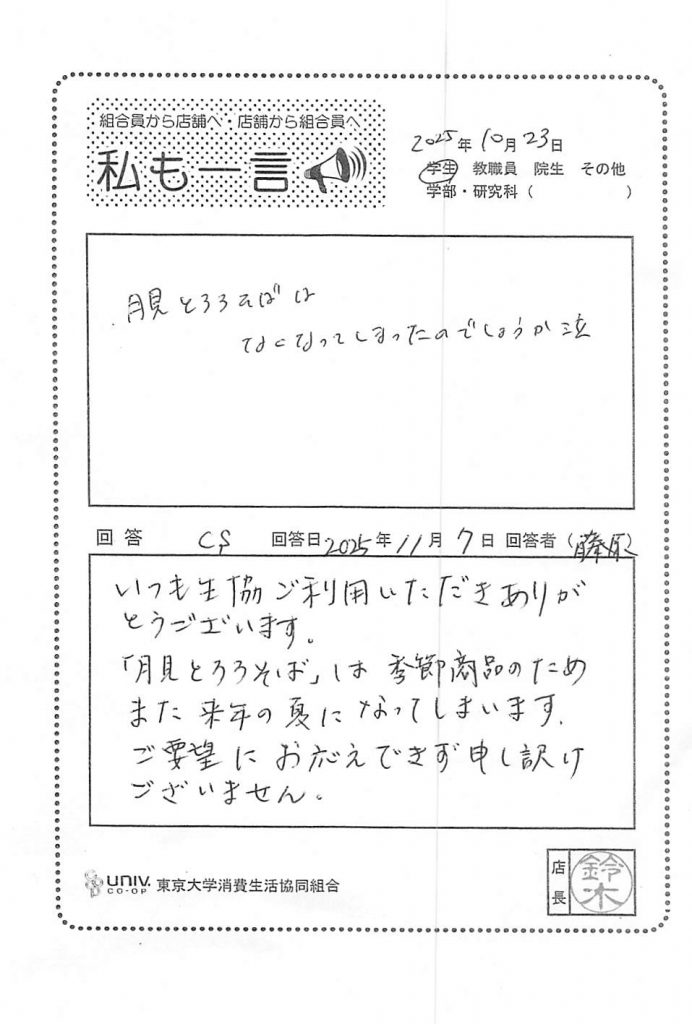 組合員から店舗へ・店舗から組合員へ
私も一言
2025年10月23日
学生 教職員 院生 その他
学部・研究科（ ）
月見とろろそばは
なくなってしまったのでしょうか泣
回答 CS 回答日 2025年11月7日 回答者（藤原）
いつも生協ご利用いただきありが
とうございます。
「月見とろろそば」は季節商品のため
また来年の夏になってしまいます。
ご要望にお応えできず申し訳け
ございません。
UNIV. CO-OP 東京大学消費生活協同組合
店長 鈴木